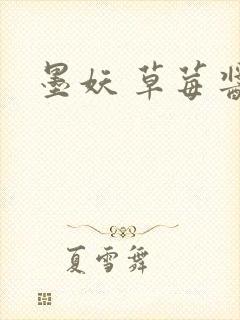 墨妖 草莓酱
夏雪舞